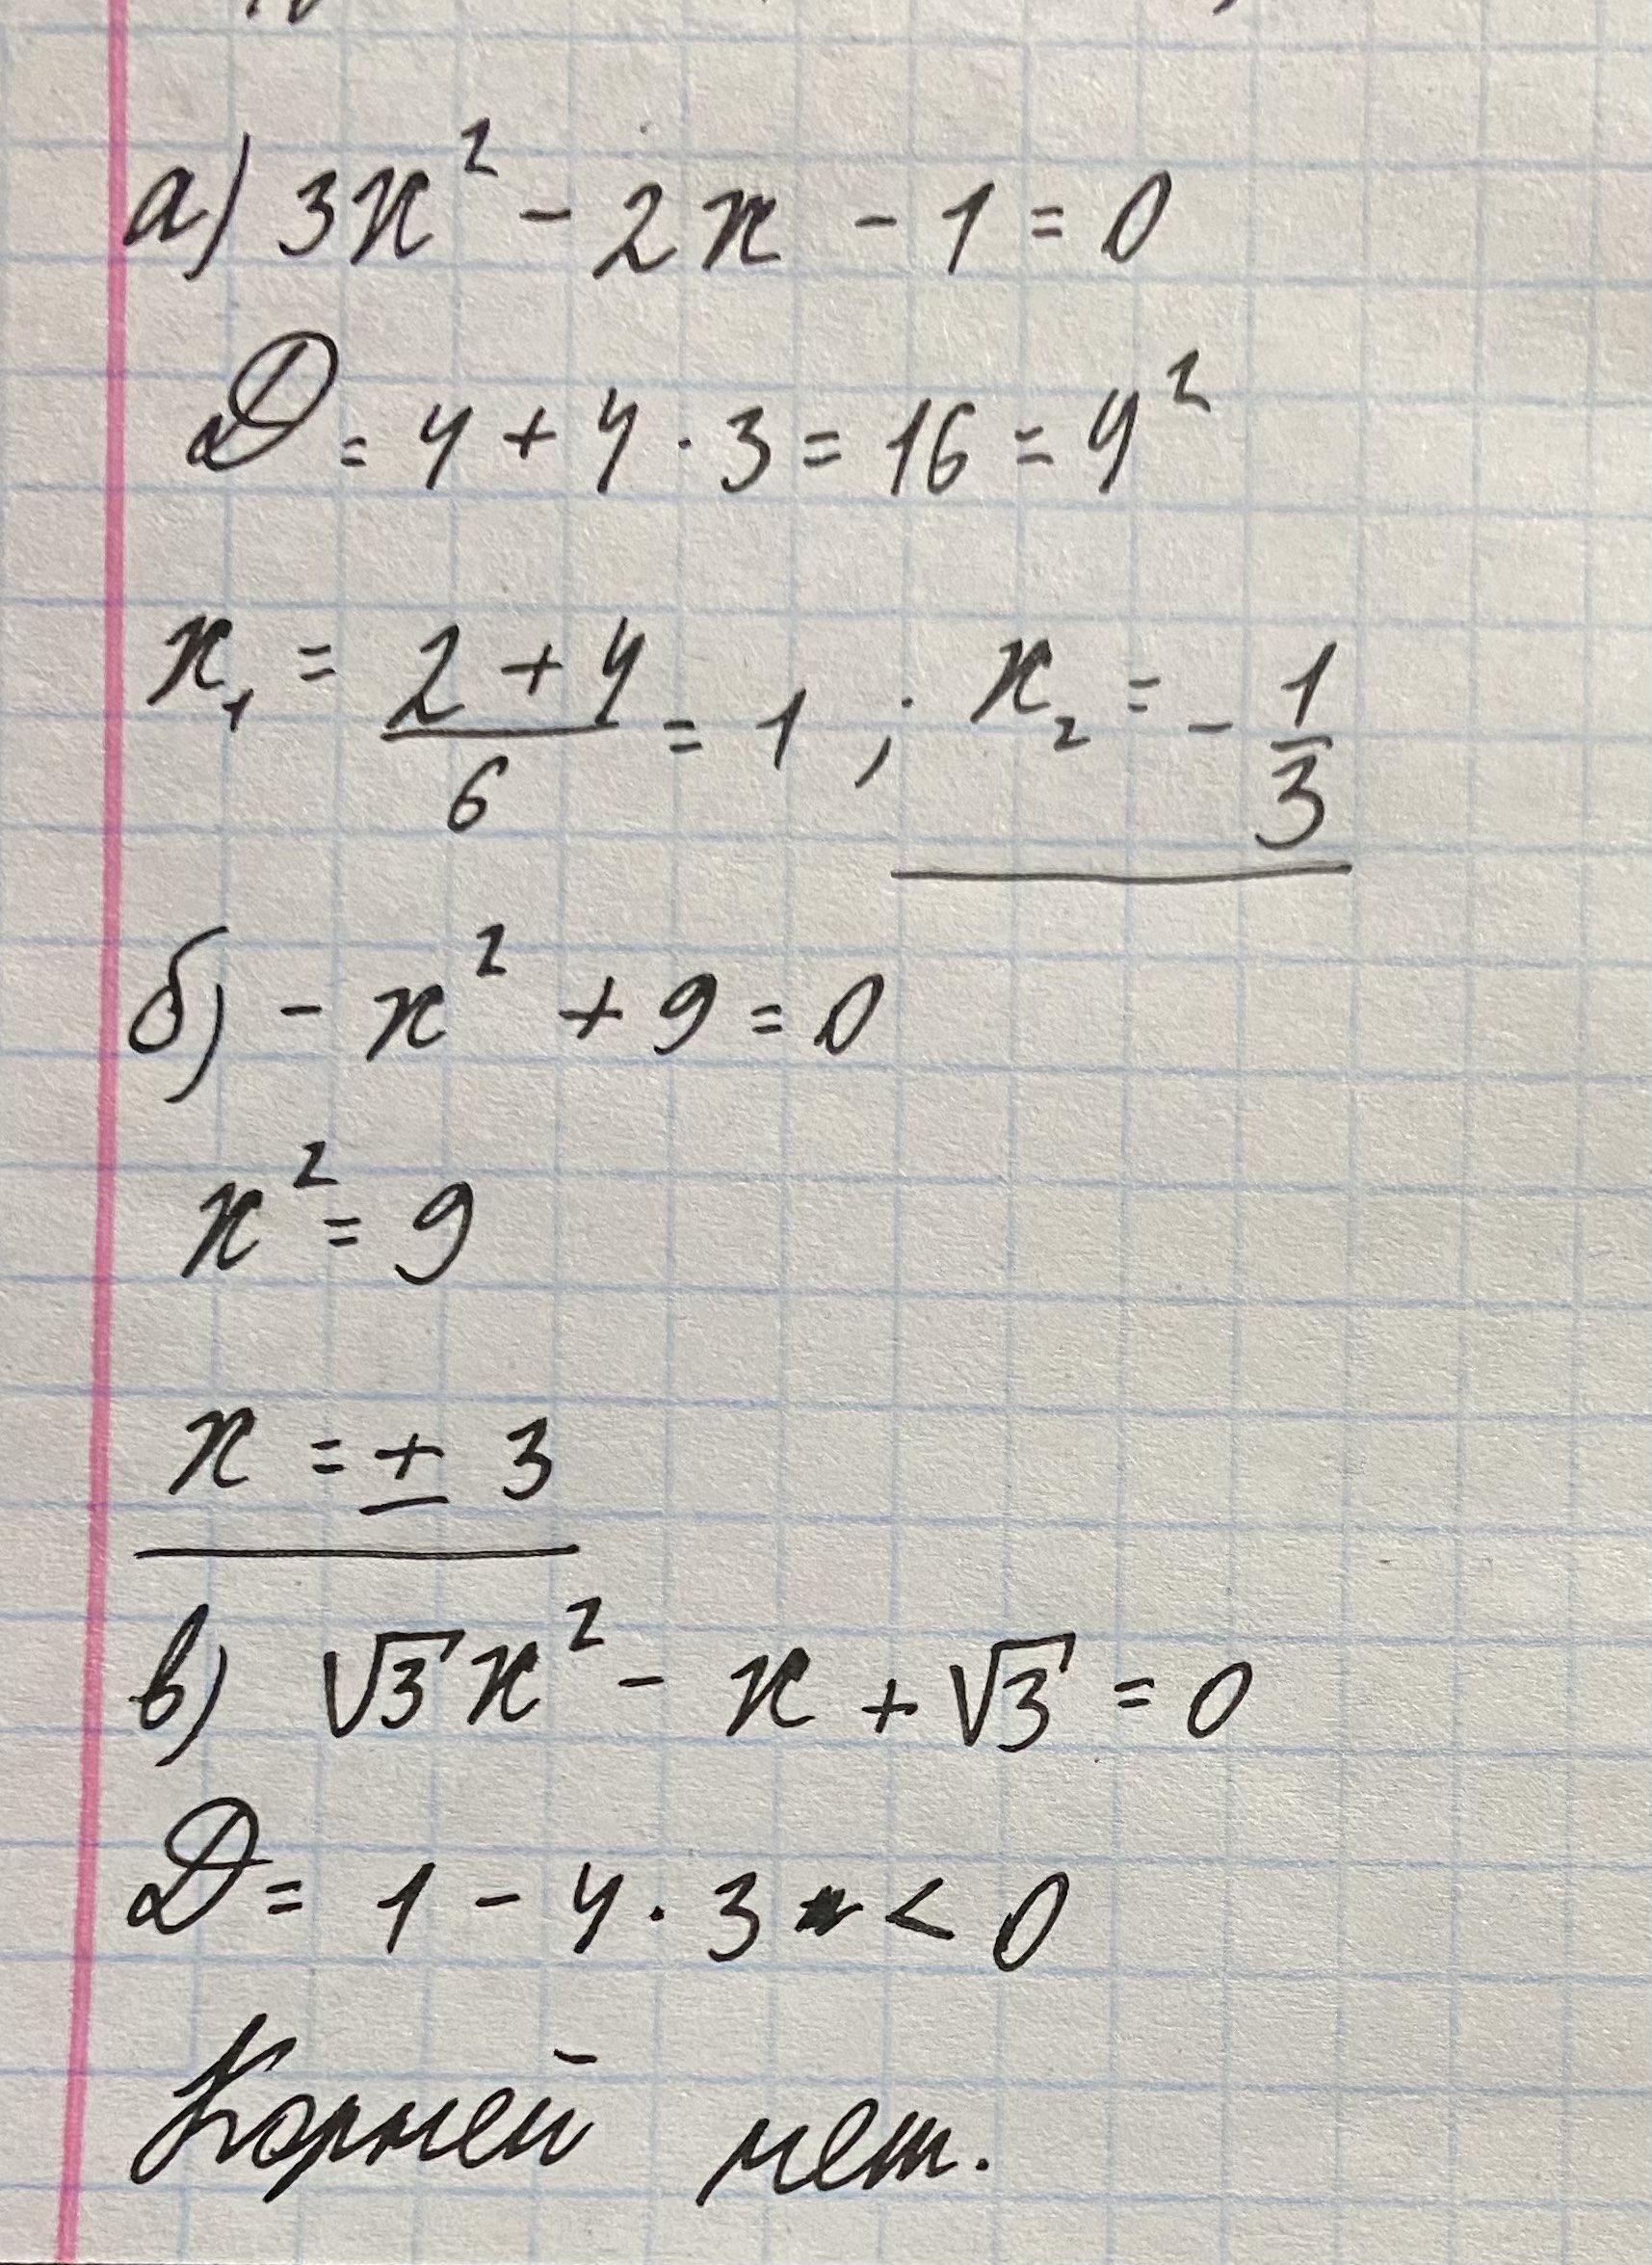 а) 3x² - 2x - 1 = 0
D = 4 + 4 · 3 = 16 = 4²
x₁ = (2 + 4)/6 = 1 ; x₂ = - 1/3
б) - x² + 9 = 0
x² = 9
x = ± 3
в) √3 x² - x + √3 = 0
D = 1 - 4 · 3 < 0
Корней нет.